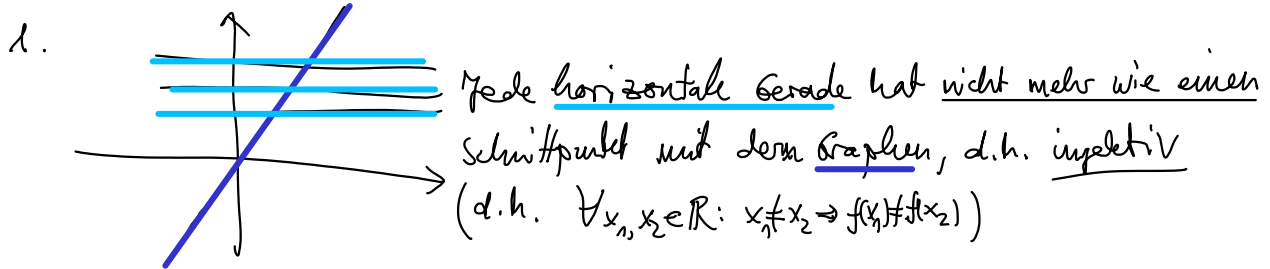 1.
Jede horizontale Gerade hat nicht mehr wie einen
Schnittpunkt mit dem Graphen, d.h. injektiv
(d.h. ∀x₁,x₂∈ℝ: x₁≠x₂ ⇒ f(x₁)≠f(x₂))